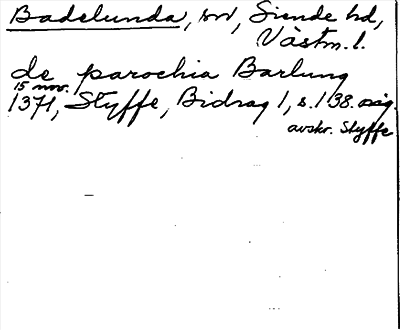 Badelunda, sn, Siende hd,
Västm. l.
de parochia Barlung
15 nov.
1371, Styffe, Bidrag 1, s. 138. sig.
avskr. Styffe